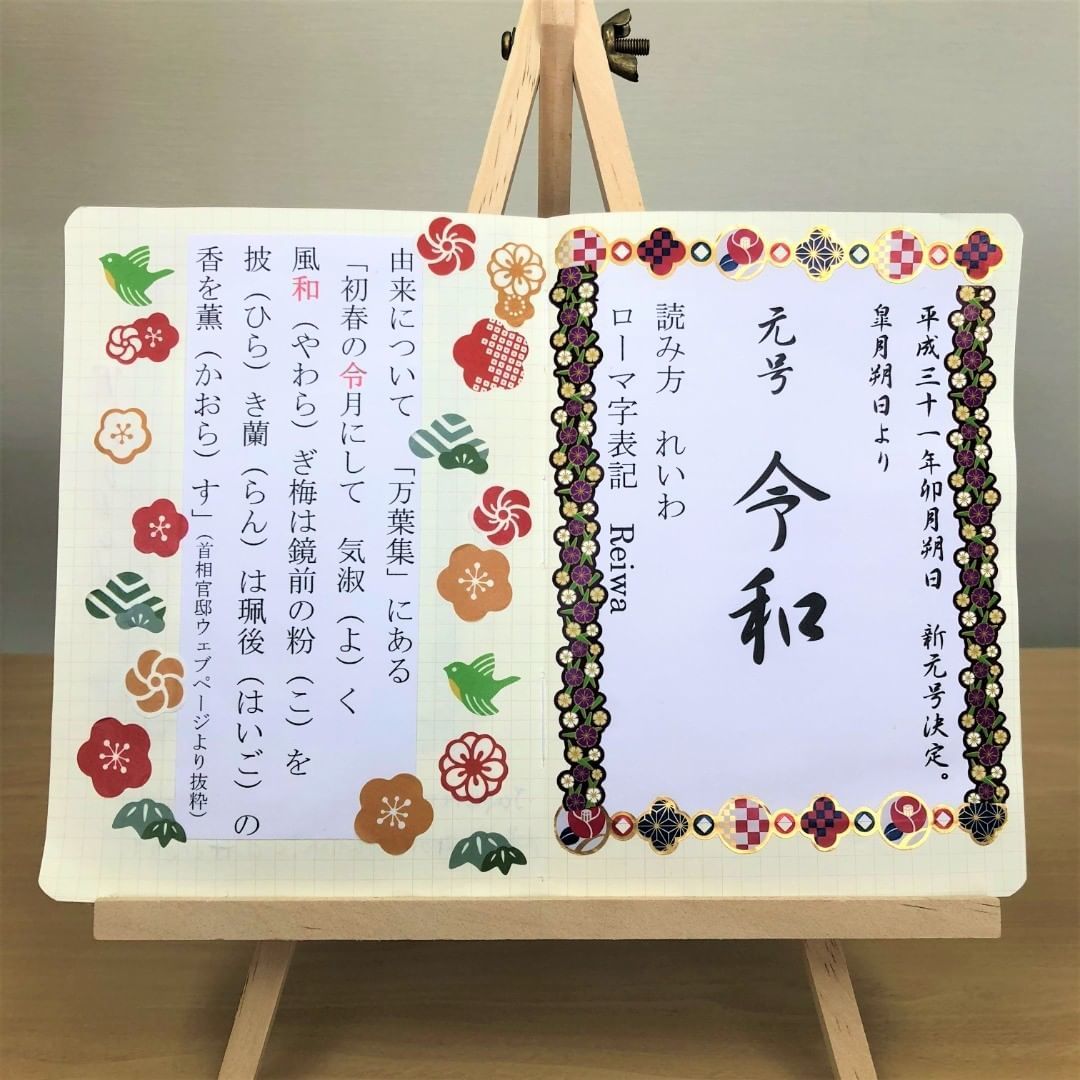 平成三十一年卯月朔日　新元号決定。
皐月朔日より
元号　令和
読み方　れいわ
ローマ字表記　Reiwa
由来について　「万葉集」にある
「初春の令月にして　気淑（よ）く
風和（やわら）ぎ梅は鏡前の粉（こ）を
披（ひら）き蘭（らん）は珮後（はいご）の
香を薫（かおら）す」（首相官邸ウェブページより抜粋）